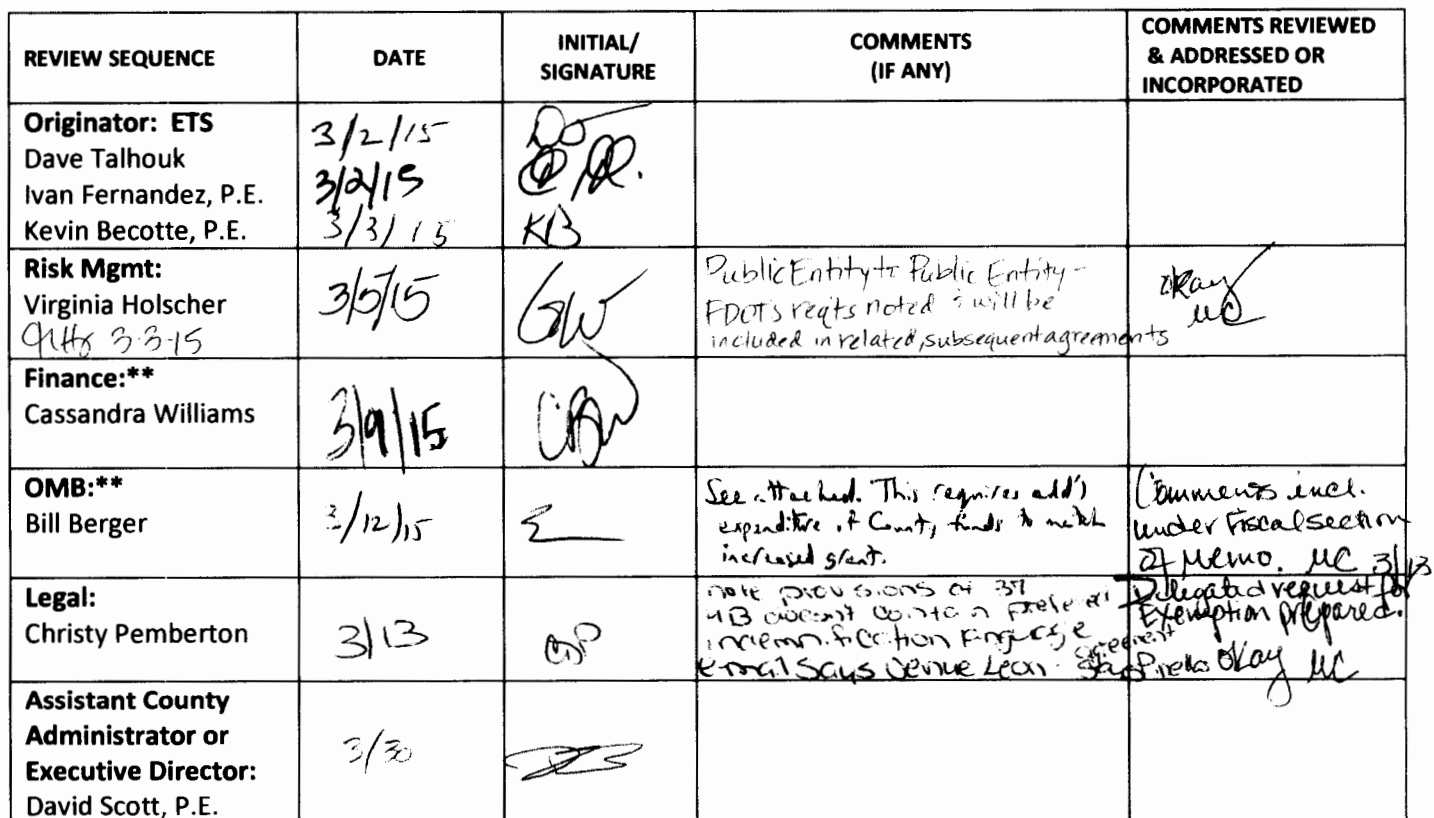 REVIEW SEQUENCE
DATE
INITIAL/
SIGNATURE
COMMENTS
(IF ANY)
COMMENTS REVIEWED
& ADDRESSED OR
INCORPORATED
Originator: ETS
Dave Talhouk
Ivan Fernandez, P.E.
Kevin Becotte, P.E.
3/2/15
3/2/15
3/3/15
KB
Risk Mgmt:
Virginia Holscher
3-3-15
3/5/15
Public Entity to Public Entity -
FDOT's reqts noted & will be
included in related, subsequent agreements
okay
MC
Finance:**
Cassandra Williams
3/9/15
CBW
OMB:**
Bill Berger
3/12/15
See attached. This requires add'l
expenditure of County funds to match
increased grant.
Comments incl.
under Fiscal section
of Memo. MC 3/13
Legal:
Christy Pemberton
3/13
note provisions of
doesn't contain
indemnification
email says Venue Leon - agreement says Pinellas
Delegated request for
Exemption prepared.
Okay MC
Assistant County
Administrator or
Executive Director:
David Scott, P.E.
3/30